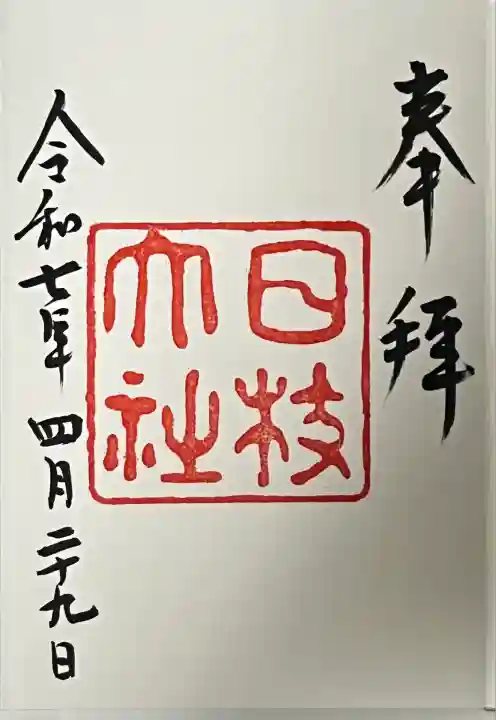 奉拝
日枝
大社
令和七年 四月二十九日